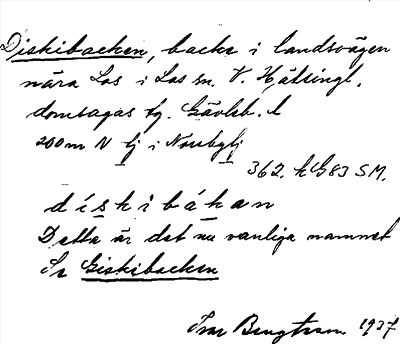 Diskibacken, backe i landsvägen
nära Los i Los sn. V. Hälsingl.
domsagas tg. Gävleb. l
200m N tj i Norrbytj
362. h G83 SM.
d í s k i b á k a n
Detta är det nu vanliga namnet
Se Giskibacken
Ivar Bengtsson 1937